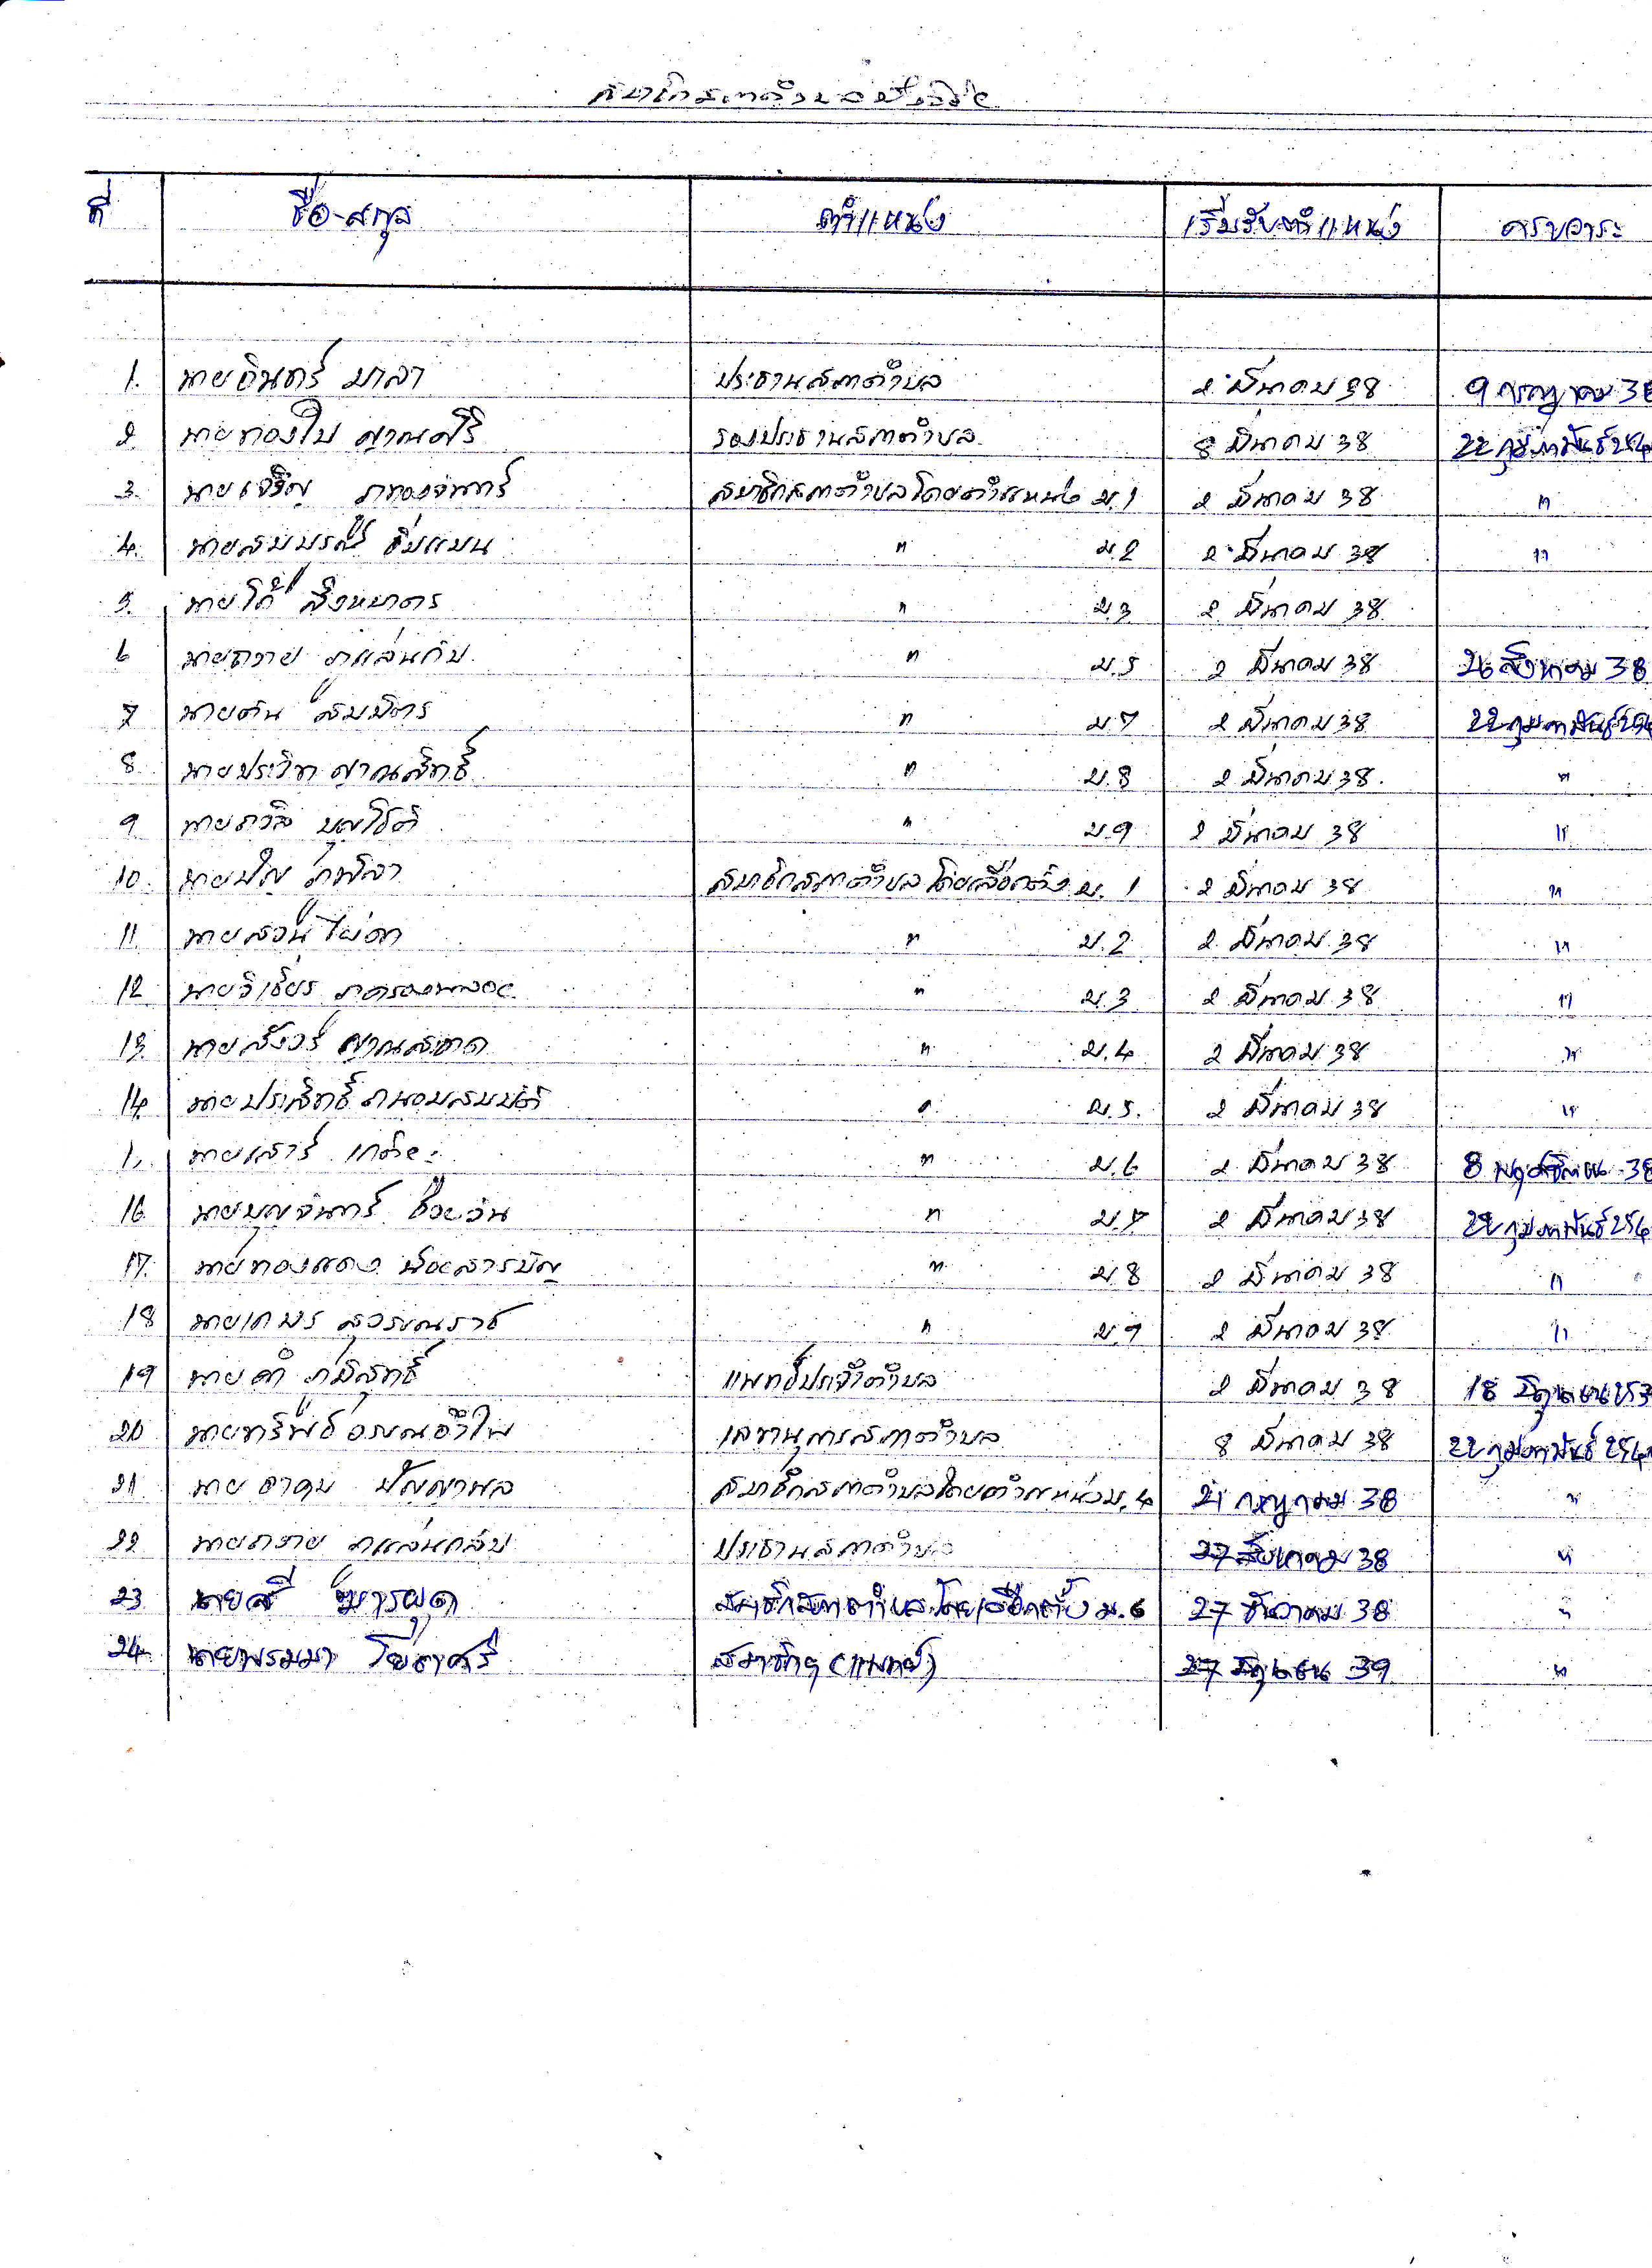 ที่ ชื่อ-สกุล ตำแหน่ง เริ่มรับตำแหน่ง ครบวาระ
1. นายอินทร์ มาลา ประธานสภาตำบล 2 มีนาคม 38 9 กรกฎาคม 38
2 นายทองใบ ญาณศรี รองประธานสภาตำบล 8 มีนาคม 38 22 กุมภาพันธ์ 254
3. นายเจริญ สมาชิกสภาตำบลโดยตำแหน่ง ม.1 2 มีนาคม 38 "
4. นายสมบูรณ์ " ม.2 2 มีนาคม 38 "
5. นายโต้ สิงหมาตร " ม.3 2 มีนาคม 38
6 นายถวาย " ม.5 2 มีนาคม 38 26 สิงหาคม 38
7 นายตัน สมมิตร " ม.7 2 มีนาคม 38 22 กุมภาพันธ์ 254
8 นายประวิท ญาณสิทธิ์ " ม.8 2 มีนาคม 38. "
9 นายถวิล บุญโชติ " ม.9 2 มีนาคม 38 "
10. สมาชิกสภาตำบลโดยเลือกตั้ง ม. 1 2 มีนาคม 38 "
11. นายสวน " ม.2 2 มีนาคม 38 "
12 นายวิเชียร " ม.3 2 มีนาคม 38 "
13. นายสังวร " ม.4 2 มีนาคม 38 "
14. นายประสิทธิ์ ถนอมสมบัติ " ม.5. 2 มีนาคม 38 "
นายเสาร์ " ม.6 2 มีนาคม 38 8 พฤศจิกายน 38
16. นายบุญจันทร์ " ม.7 2 มีนาคม 38 22 กุมภาพันธ์ 254
17. นายทองแดง น้อยสารบัญ " ม.8 2 มีนาคม 38 "
18 นายเกษร สุวรรณราช " ม.9 2 มีนาคม 38 "
19 นายคำ แพทย์ประจำตำบล 2 มีนาคม 38 18 มิถุนายน 253
20 นายทรัพย์ เลขานุการสภาตำบล 8 มีนาคม 38 22 กุมภาพันธ์ 254
21 นายอาคม ปัญญาพล สมาชิกสภาตำบลโดยตำแหน่ง ม.4 21 กรกฎาคม 38 "
22 นายถวาย ประธานสภาตำบล 27 สิงหาคม 38 "
23 นายสี สมาชิกสภาตำบลโดยเลือกตั้ง ม.6 27 ธันวาคม 38 "
24. นายพรมมา โยธาศรี สมาชิกฯ (แพทย์) 27 มิถุนายน 39 "